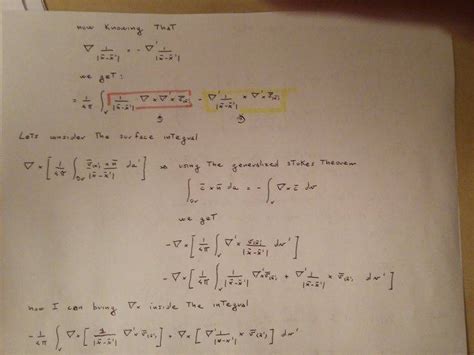 now knowing that
∇ 1/|x̄-x̄'| = - ∇' 1/|x̄-x̄'|
we get:
= 1/4π ∫_V 1/|x̄-x̄'| · ∇×∇'× v̄(x̄') - ∇' 1/|x̄-x̄'| × ∇'× v̄(x̄')
Lets consider the surface integral
∇ × [ 1/4π ∫_∂V v̄(x̄') × n̄ / |x̄-x̄'| da' ] using the generalized stokes Theorem
∫_∂V c̄ × n̄ da = - ∫_V ∇ × c̄ dv
we get
-∇ × [ 1/4π ∫_V ∇' × v̄(x̄') / |x̄-x̄'| dv' ]
-∇ × [ 1/4π ∫_V 1/|x̄-x̄'| ∇' × v̄(x̄') + ∇' 1/|x̄-x̄'| × v̄(x̄') dv' ]
now I can bring ∇× inside the integral
- 1/4π ∫_V ∇ × [ 1/|x̄-x̄'| ∇' × v̄(x̄') ] + ∇ × [ ∇' 1/|x-x'| × v̄(x̄') ] dv'